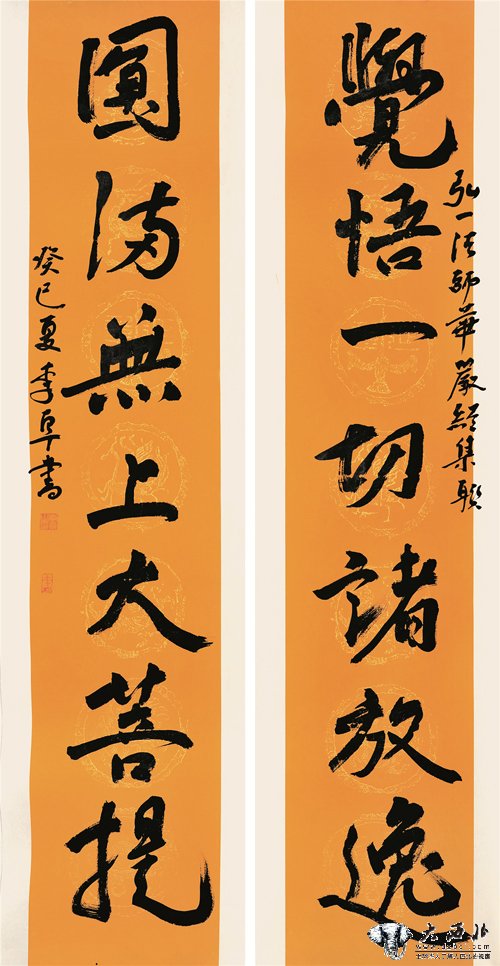 覺悟一切諸放逸
弘一法師華嚴經集聯
圓滿無上大菩提
癸巳夏李阜書
老西北